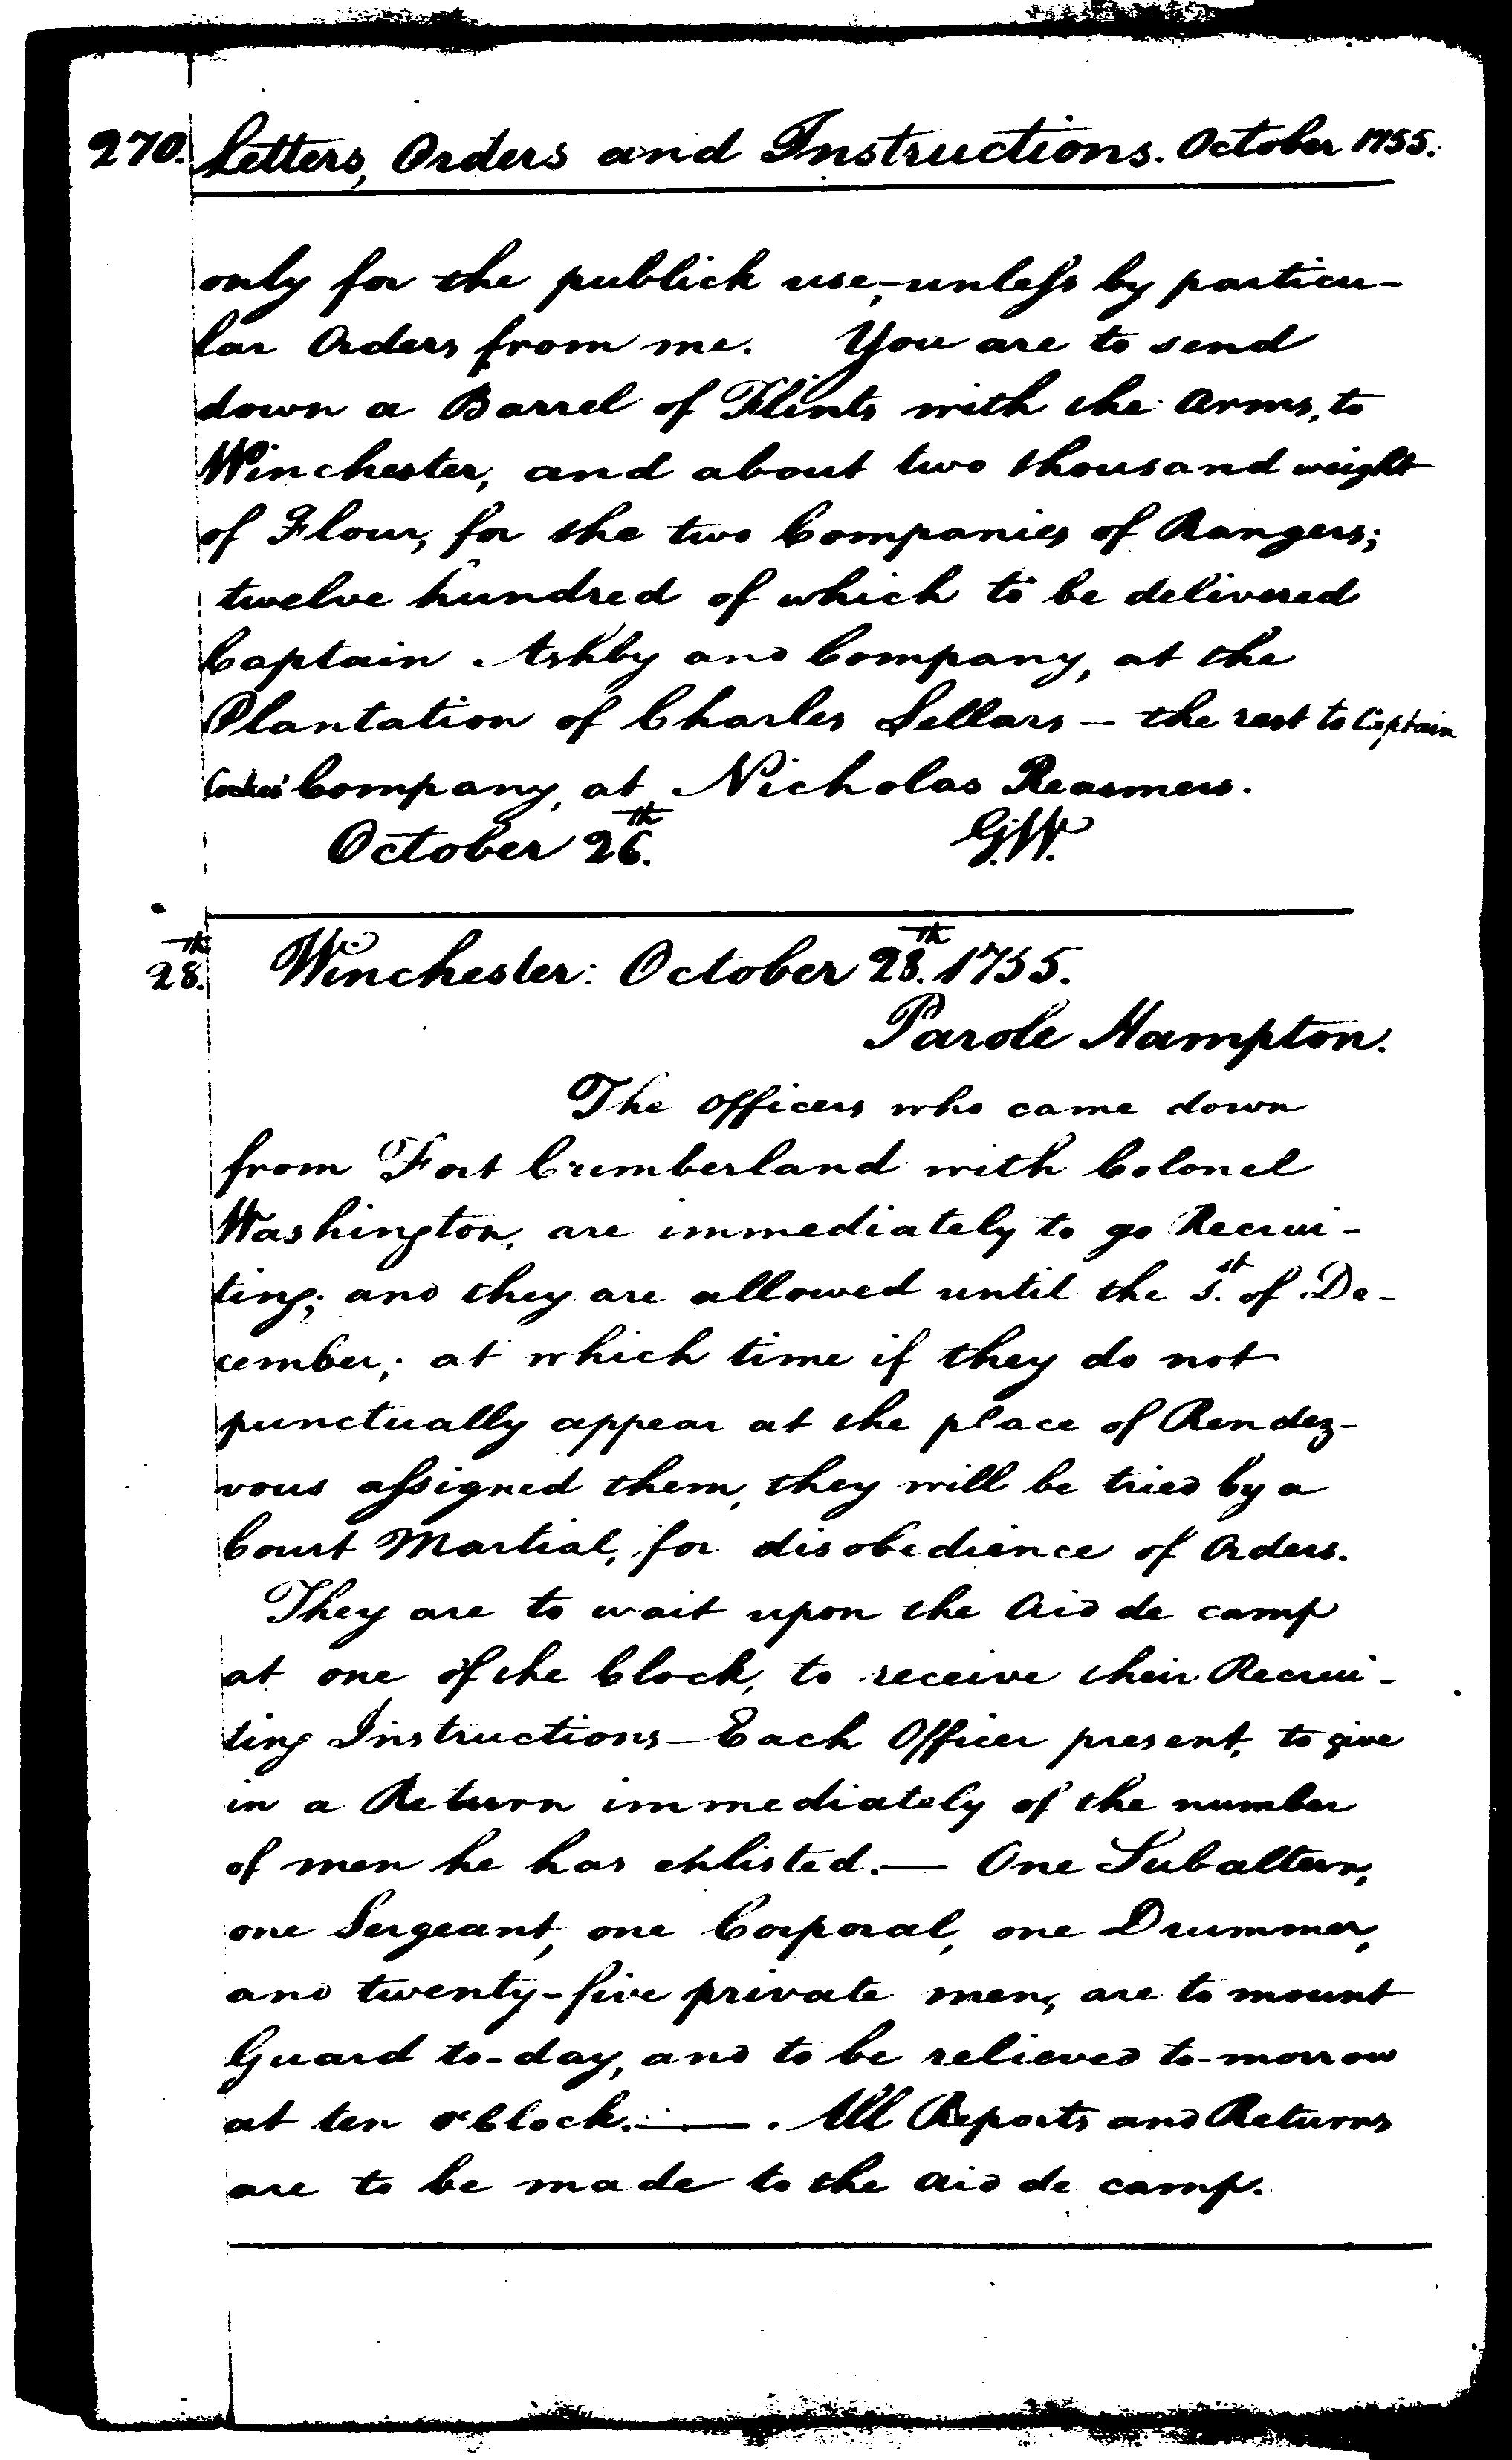 270. Letters, Orders and Instructions. October 1755.
only for the publick use,- unless by particu-
lar Orders from me. You are to send
down a Barrel of Flints with the Arms, to
Winchester, and about two thousand weight
of Flour, for the two Companies of Rangers;
twelve hundred of which to be delivered
Captain Ashby and Company, at the
Plantation of Charles Sellars - the rest to Captain
Cockes' Company, at Nicholas Reasmers.
October 26.th G:W.
28.th Winchester: October 28.th 1755.
Parole Hampton.
The Officers who came down
from Fort Cumberland with Colonel
Washington, are immediately to go Recrui-
ting; and they are allowed until the 1.st of De-
cember; at which time if they do not
punctually appear at the place of Rendez-
vous assigned them, they will be tried by a
Court Martial, for disobedience of Orders.
They are to wait upon the Aid de camp
at one of the Clock, to receive their Recrui-
ting Instructions - Each Officer present, to give
in a Return immediately of the number
of men he has enlisted. — One Subaltern,
one Sergeant, one Corporal, one Drummer,
and twenty-five private men, are to mount
Guard to-day, and to be relieved to-morrow
at ten o'Clock. — . All Reports and Returns
are to be made to the Aid de camp.